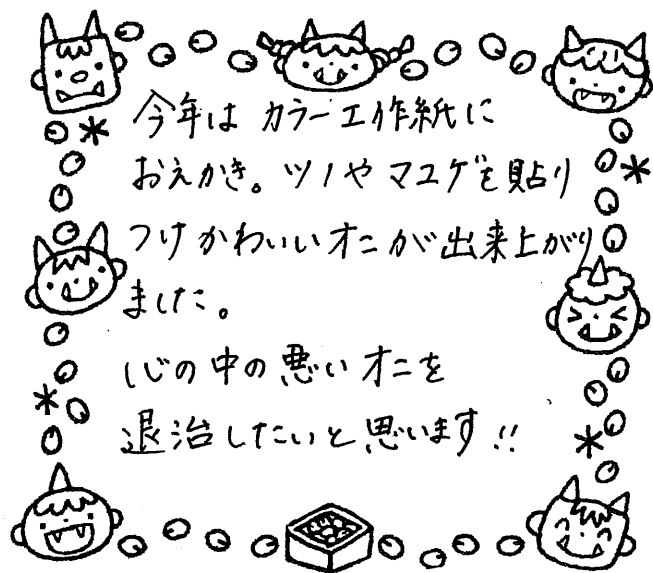 今年は カラー工作紙に
おえかき。ツノや マユゲを 貼り
つけ かわいい オニが 出来上がり
ました。
心の中の 悪い オニを
退治したいと 思います!!